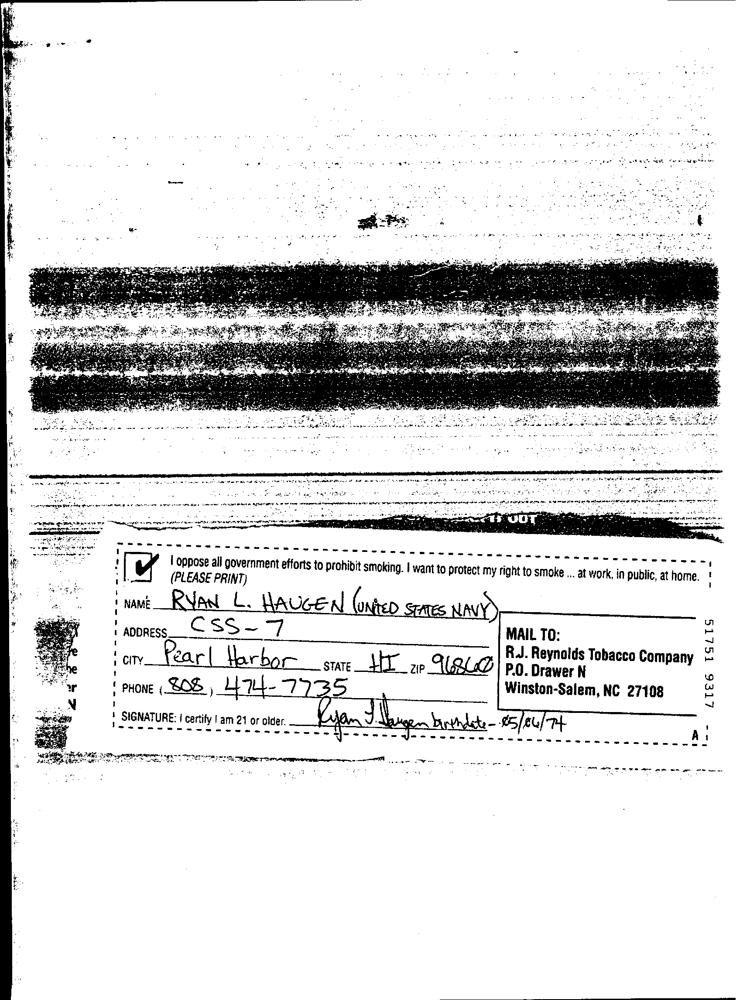 I oppose all government efforts to prohibit smoking. I want to protect my right to smoke ... at work, in public, at home.
(PLEASE PRINT)
NAME RYAN L. HAUGEN (UNITED STATES NAVY)
ADDRESS CSS-7
CITY Pearl Harbor STATE HI ZIP 96860
PHONE (808) 474-7735
SIGNATURE: I certify I am 21 or older. Ryan L. Haugen birthdate - 05/06/74
MAIL TO:
R.J. Reynolds Tobacco Company
P.O. Drawer N
Winston-Salem, NC 27108
A
51751 9317